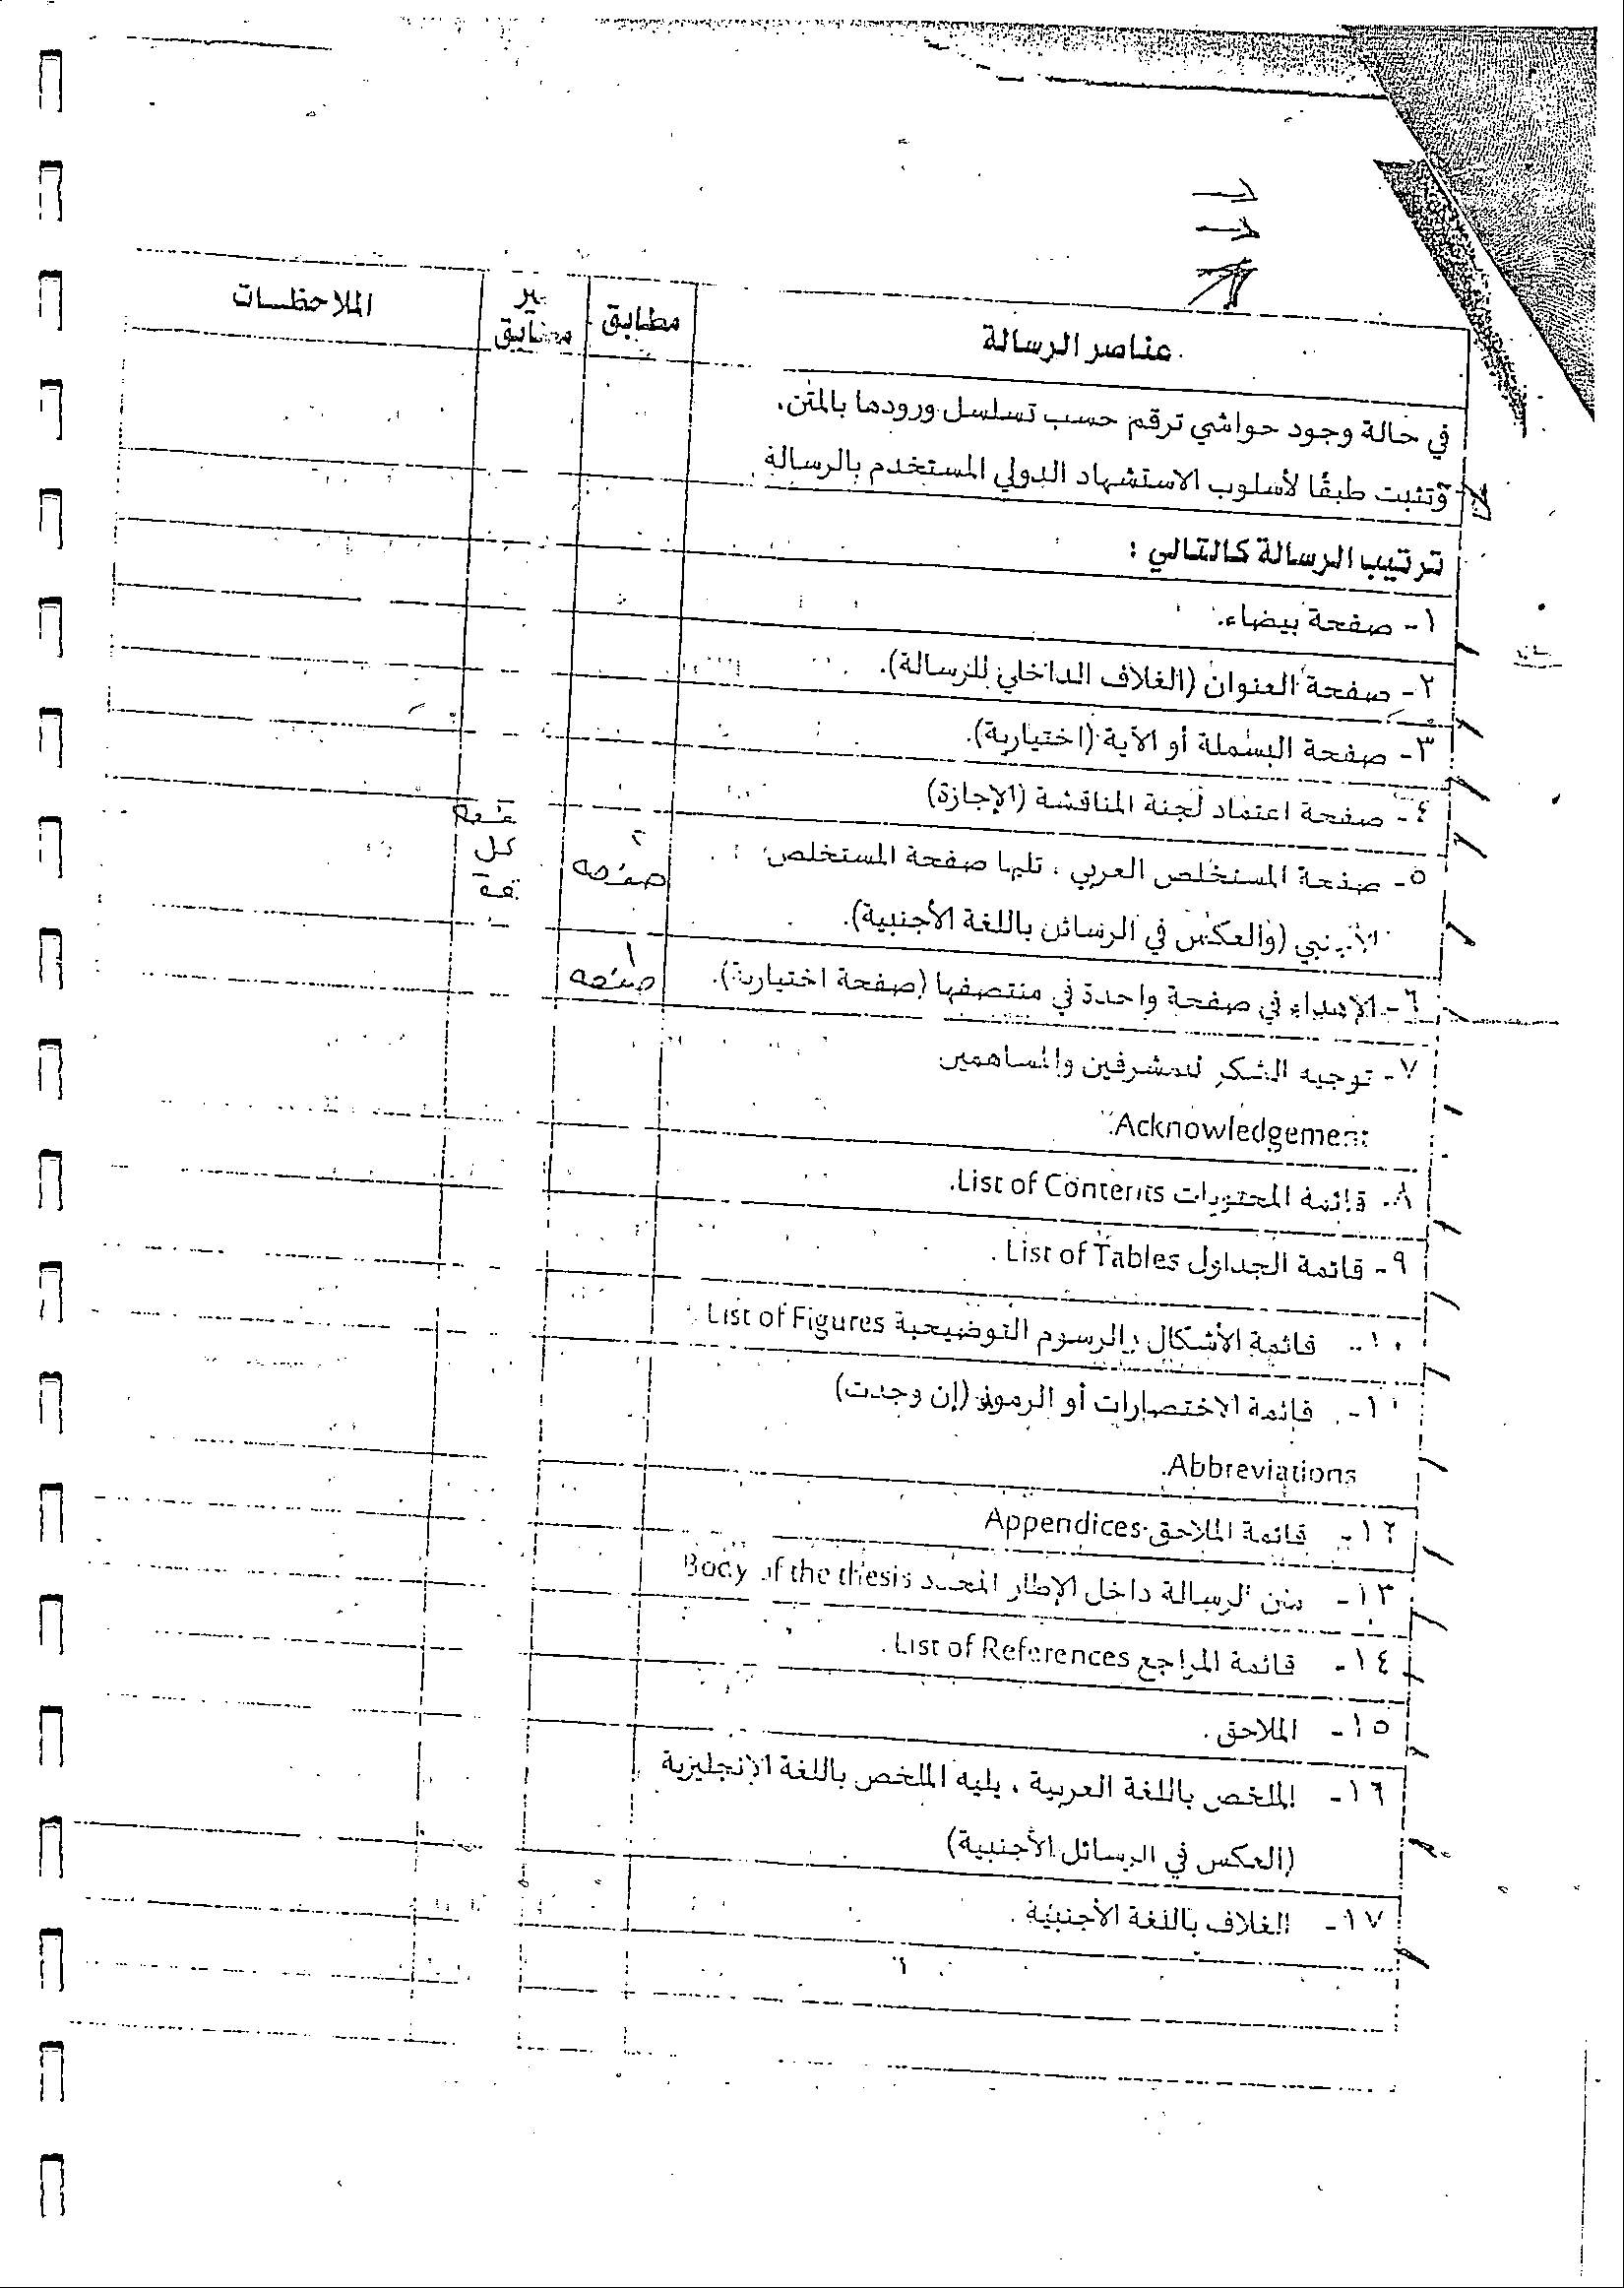 عناصر الرسالة
مطابق
غير مطابق
الملاحظات
في حالة وجود حواشي ترقم حسب تسلسل ورودها بالمتن،
وتثبت طبقًا لأسلوب الاستشهاد الدولي المستخدم بالرسالة
ترتيب الرسالة كالتالي :
١- صفحة بيضاء.
٢- صفحة العنوان (الغلاف الداخلي للرسالة).
٣- صفحة البسملة أو الآية (اختيارية).
٤- صفحة اعتماد لجنة المناقشة (الإجازة)
٥- صفحة المستخلص العربي ، تليها صفحة المستخلص
الأجنبي (والعكس في الرسائل باللغة الأجنبية).
٢ صفحه
كل
٦- الإهداء في صفحة واحدة في منتصفها (صفحة اختيارية).
١ صفحه
٧- توجيه الشكر للمشرفين والمساهمين
Acknowledgement.
٨- قائمة المحتويات List of Contents.
٩- قائمة الجداول List of Tables .
١٠- قائمة الأشكال والرسوم التوضيحية List of Figures
١١- قائمة الاختصارات أو الرموز (إن وجدت)
Abbreviations.
١٢- قائمة الملاحق Appendices
١٣- متن الرسالة داخل الإطار المحدد Body of the thesis
١٤- قائمة المراجع List of References .
١٥- الملاحق .
١٦- الملخص باللغة العربية ، يليه الملخص باللغة الإنجليزية
(العكس في الرسائل الأجنبية)
١٧- الغلاف باللغة الأجنبية .